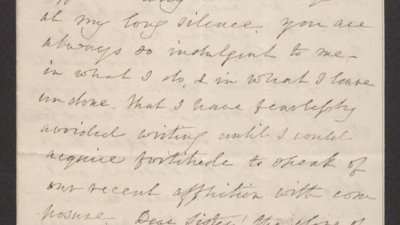 at my long silence. you are
always so indulgent to me -
in what I do, & in what I leave
undone. That I have fearlessly
avoided writing until I could
acquire fortitude to speak of
our recent affliction with com
posure. Dear Sister! the close of